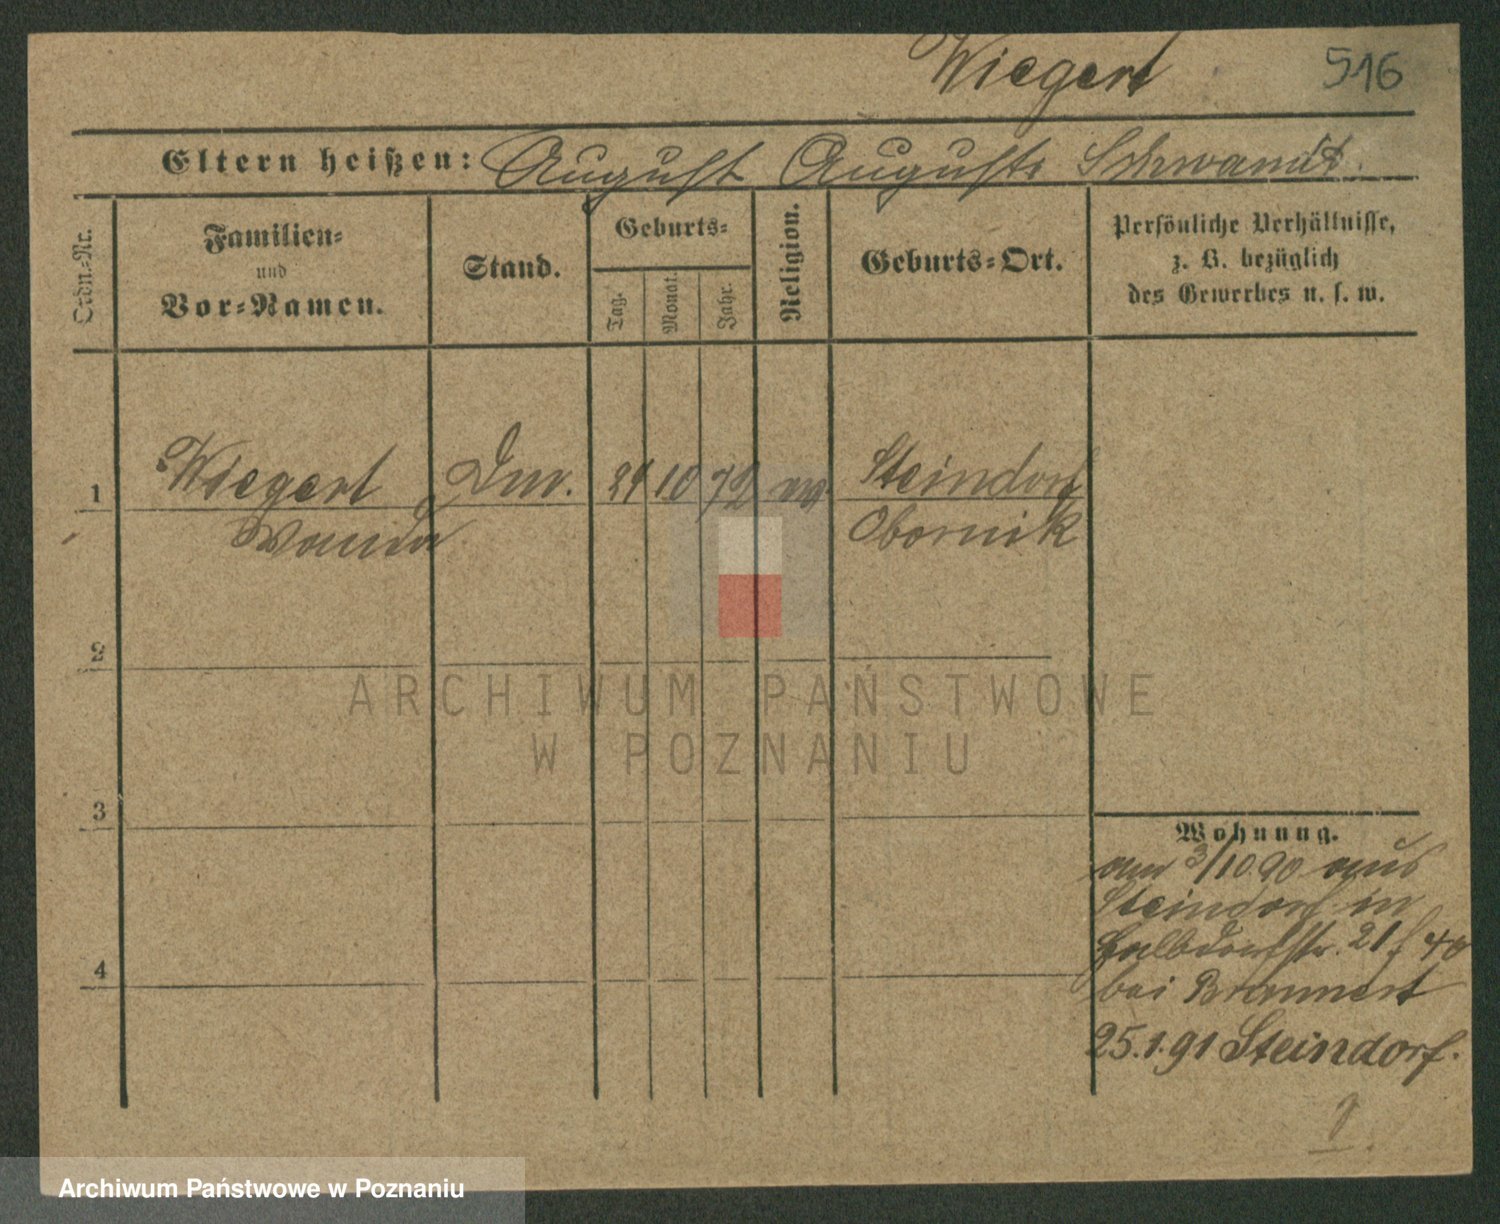 Wiegert 516
Eltern heißen: August Auguste Schwandt
Ordn.-Nr.
Familien-
und
Vor-Namen.
Stand.
Geburts-
Tag.
Monat.
Jahr.
Religion.
Geburts-Ort.
Persönliche Verhältnisse,
z. B. bezüglich
des Gewerbes u. s. w.
1 Wiegert Dm. 24 10 72 ev. Steindorf
Wanda Obornik
2
ARCHIWUM PAŃSTWOWE
W POZNANIU
3
Wohnung.
am 3/10 90 aus
Steindorf in
Halbdorfstr. 21
4
bei Brannert
25.1.91 Steindorf.
Archiwum Państwowe w Poznaniu